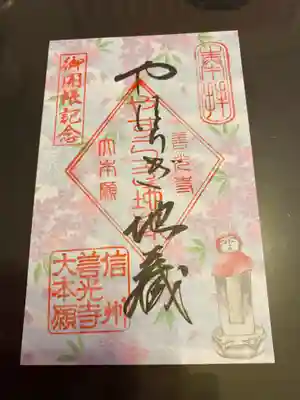 奉拝
御開帳記念
やすらぎ地蔵
善光寺
大本願
信州
善光寺
大本願